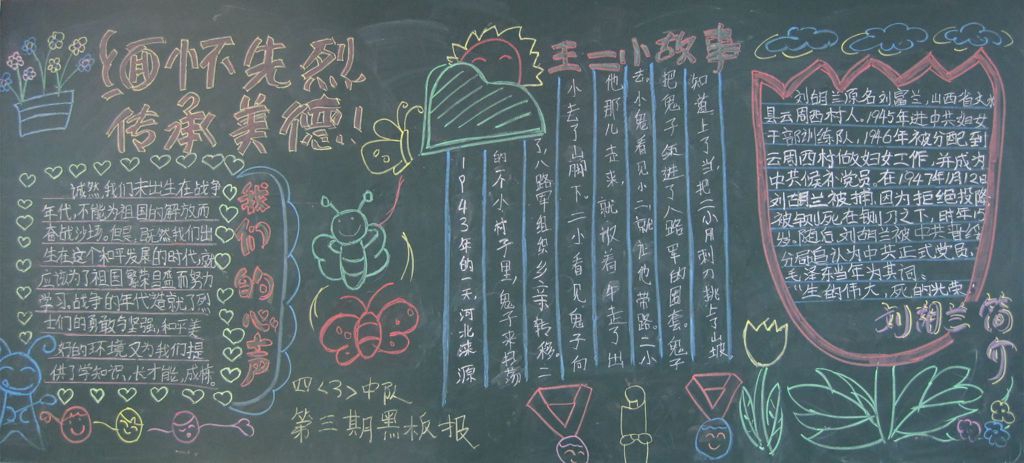 缅怀先烈
传承美德！
我们的心声
诚然我们未出生在战争
年代，不能为祖国的解放而
奋战沙场。但是，既然我们出
生在这个和平发展的时代，就
应该为了祖国繁荣昌盛而努力
学习。战争的年代造就了烈
士们的勇敢与坚强，和平美
好的环境又为我们提
供了学知识，长才能，成栋。
四〈3〉中队
第三期黑板报
王二小故事
1943年的一天，河北涞源
的一个小村子里，鬼子来扫荡
了，八路军组织乡亲转移。二
小去了山脚下。二小看见鬼子向
他那儿走来，就放着牛走了出
去。小鬼看见小二就让他带路。二小
把鬼子领进了八路军的圈套。鬼子
知道上了当，把二小用刺刀挑上了山坡
刘胡兰原名刘富兰，山西省文水
县云周西村人。1945年进中共妇女
干部训练队，1946年被分配到
云周西村做妇女工作，并成为
中共候补党员。在1947年1月12日
刘胡兰被捕，因为拒绝投降
被铡死在铡刀之下，时年15
岁。随后，刘胡兰被中共晋绥
分局追认为中共正式党员。
毛泽东当年为其词：
“生的伟大，死的光荣”
刘胡兰简介